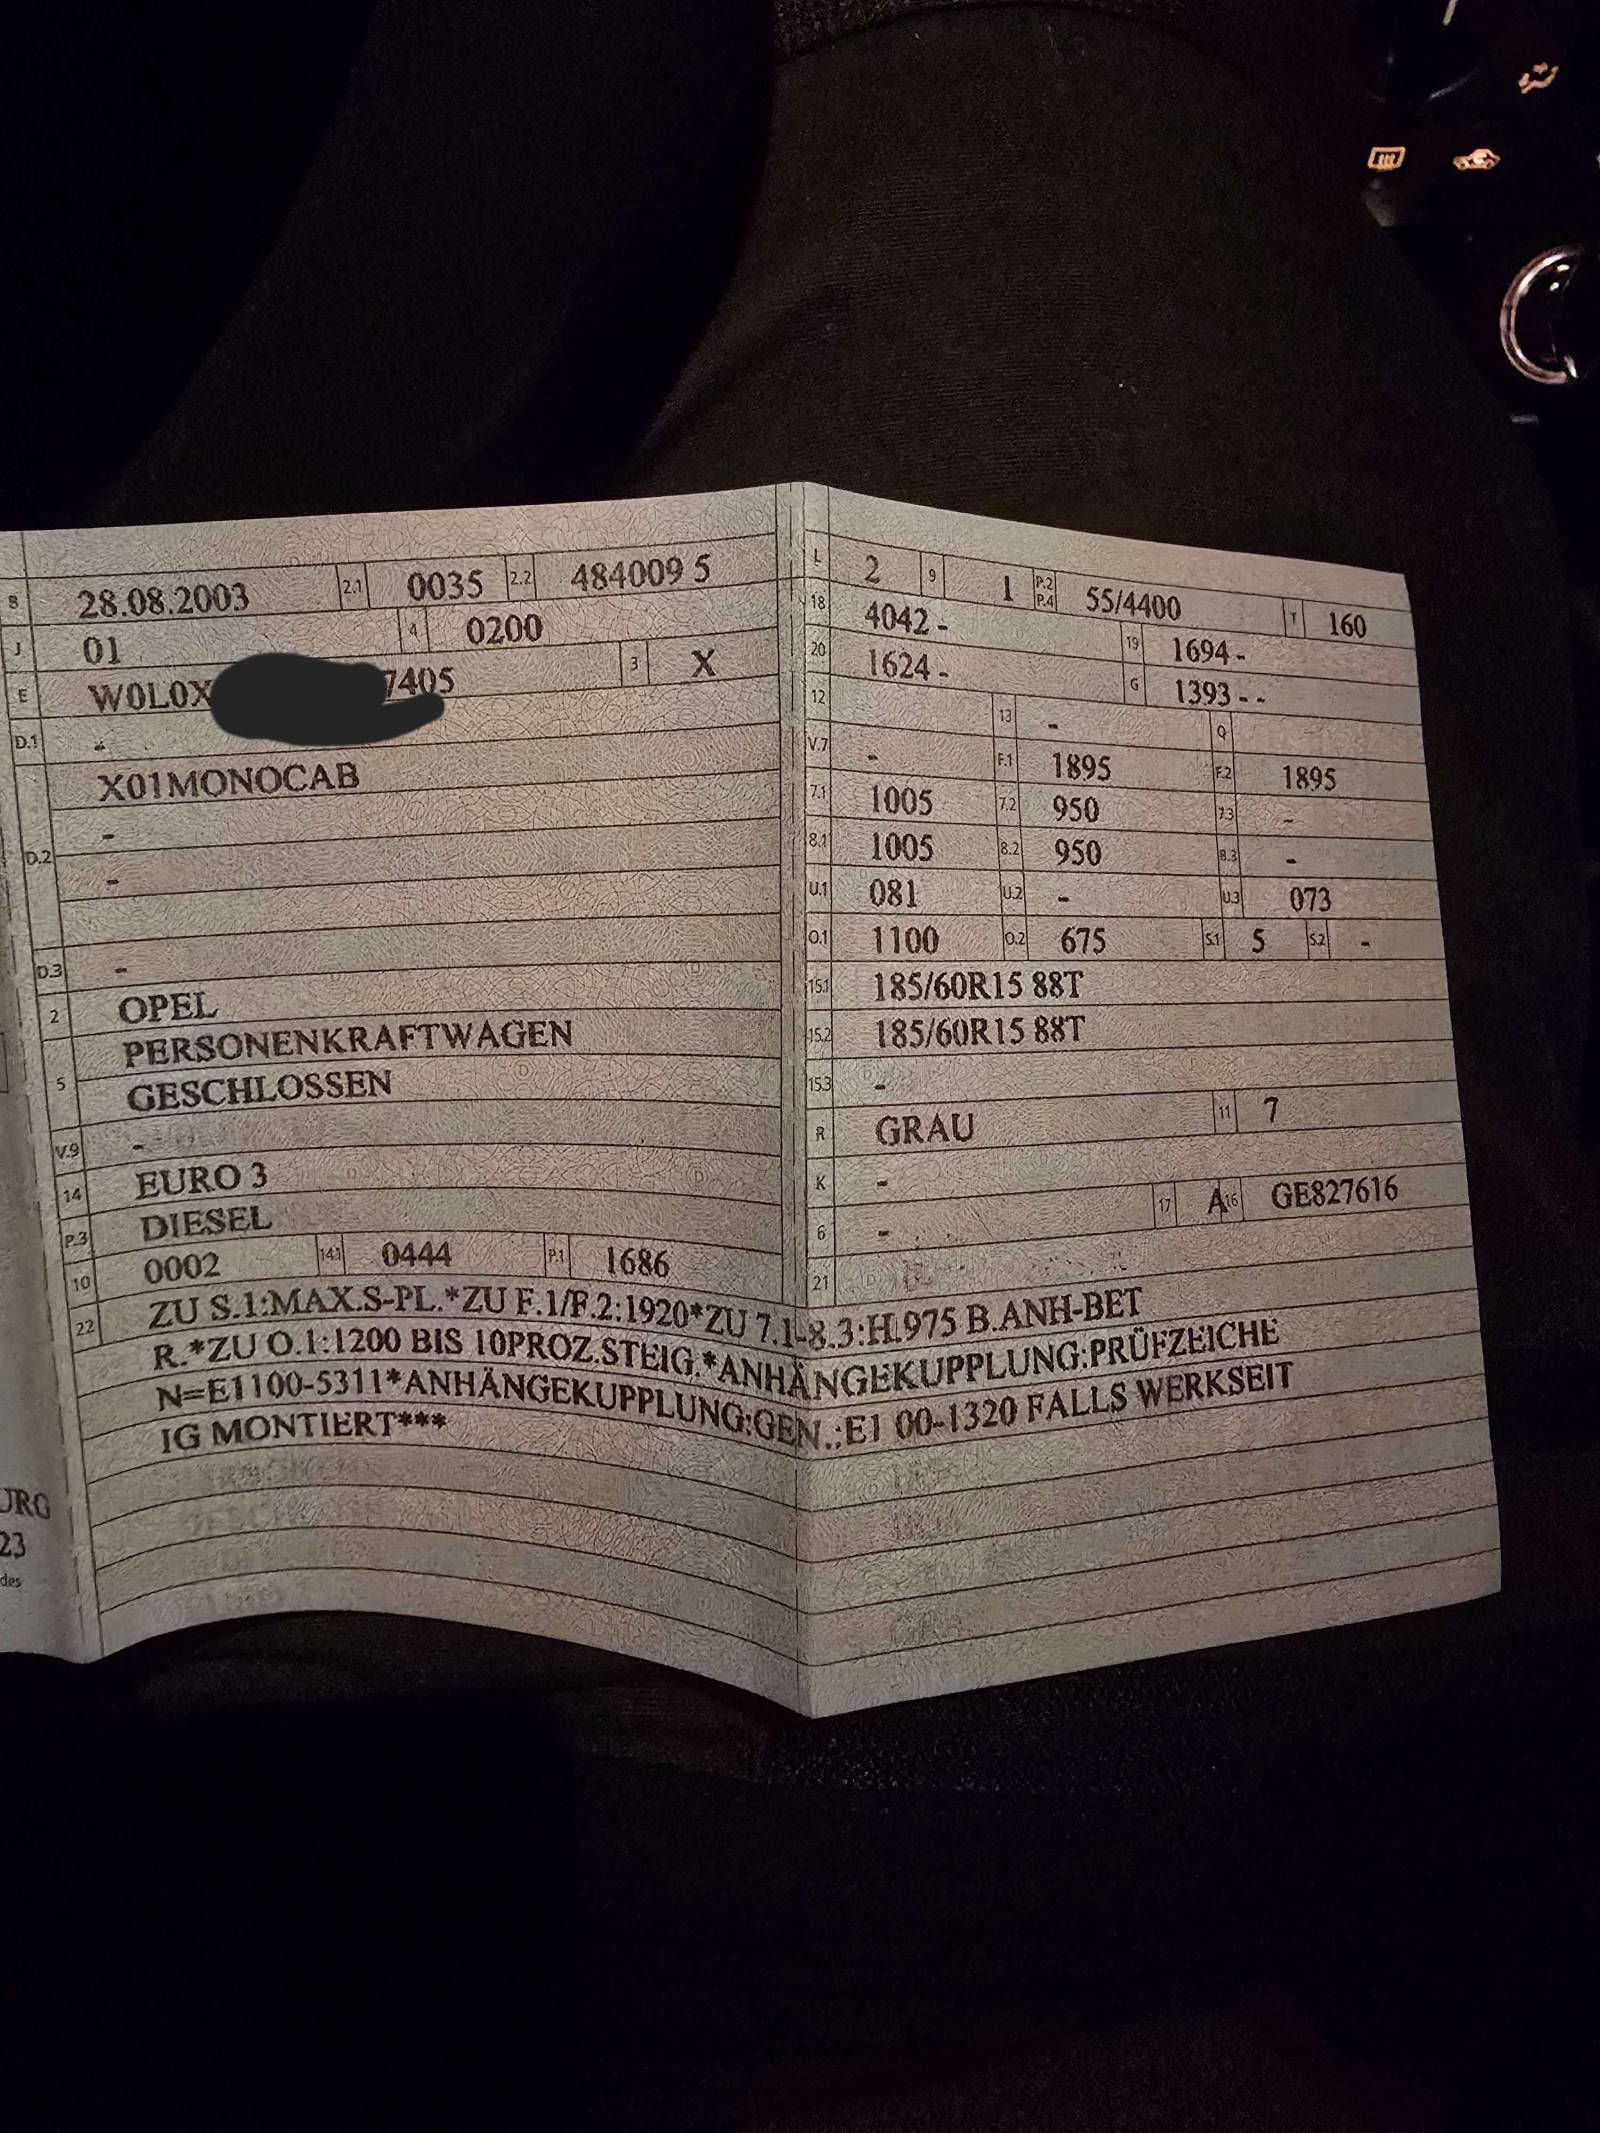 B 28.08.2003 2.1 0035 2.2 484009 5
J 01 4 0200
E W0L0X 7405 3 X
D.1 -
D.2 X01MONOCAB
-
-
D.3 -
2 OPEL
5 PERSONENKRAFTWAGEN
GESCHLOSSEN
V.9 -
14 EURO 3
P.3 DIESEL
10 0002 14.1 0444 P.1 1686
L 2 9 1 P.2 P.4 55/4400 T 160
18 4042 - 19 1694 -
20 1624 - G 1393 - -
12 13 - Q
V.7 - F.1 1895 F.2 1895
7.1 1005 7.2 950 7.3 -
8.1 1005 8.2 950 8.3 -
U.1 081 U.2 - U.3 073
O.1 1100 O.2 675 S.1 5 S.2 -
15.1 185/60R15 88T
15.2 185/60R15 88T
15.3 -
R GRAU 11 7
K -
6 - 17 A 16 GE827616
21
22 ZU S.1:MAX.S-PL.*ZU F.1/F.2:1920*ZU 7.1-8.3:H.975 B.ANH-BET
R.*ZU O.1:1200 BIS 10PROZ.STEIG.*ANHÄNGEKUPPLUNG:PRÜFZEICHE
N=E1100-5311*ANHÄNGEKUPPLUNG:GEN.:E1 00-1320 FALLS WERKSEIT
IG MONTIERT***
URG
23
des